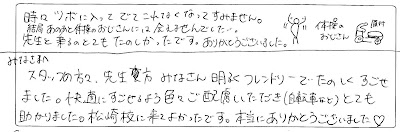 時々ツボに入ってでてこれなくなってすみません。
結局あのあと体操のおじさんには会えませんでした…。
先生と乗るのとてもたのしかったです。ありがとうございました。
体操の
おじさん
みなさまへ
スタッフの方々、先生貴方 みなさん 明るくフレンドリーでたのしくすごせ
ました。快適にすごせるよう色々ご配慮しいただき(自転車など)とても
助かりました。松崎校に来てよかったです。本当にありがとうございました♡